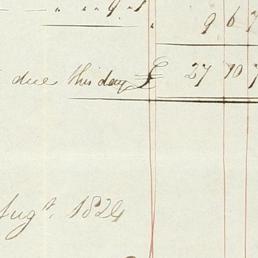 9 6 7
due this day £ 27 10 7
Augst. 1824